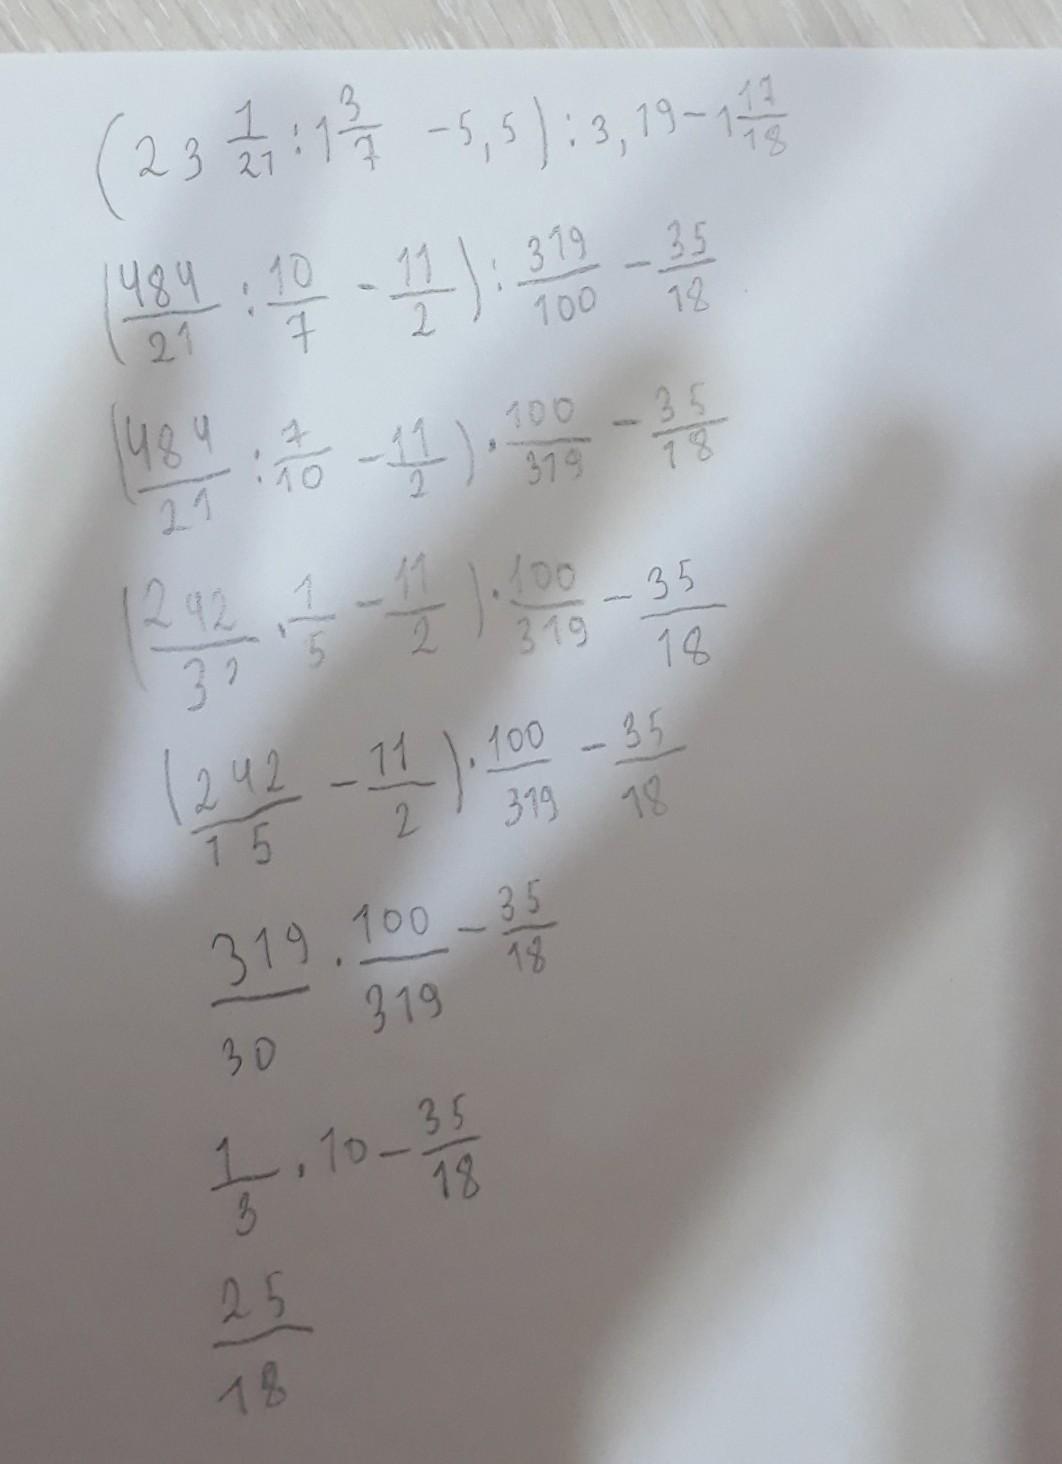 (23 1/21 : 1 3/7 - 5,5) : 3,19 - 1 17/18
(484/21 : 10/7 - 11/2) : 319/100 - 35/18
(484/21 : 7/10 - 11/2) · 100/319 - 35/18
(242/3 · 1/5 - 11/2) · 100/319 - 35/18
(242/15 - 11/2) · 100/319 - 35/18
319/30 · 100/319 - 35/18
1/3 · 10 - 35/18
25/18